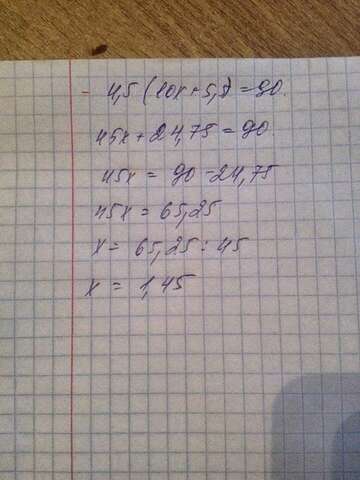 - 4,5 (10x+5,5) = 90.
45x + 24,75 = 90
45x = 90 - 24,75
45x = 65,25
x = 65,25 : 45
x = 1,45